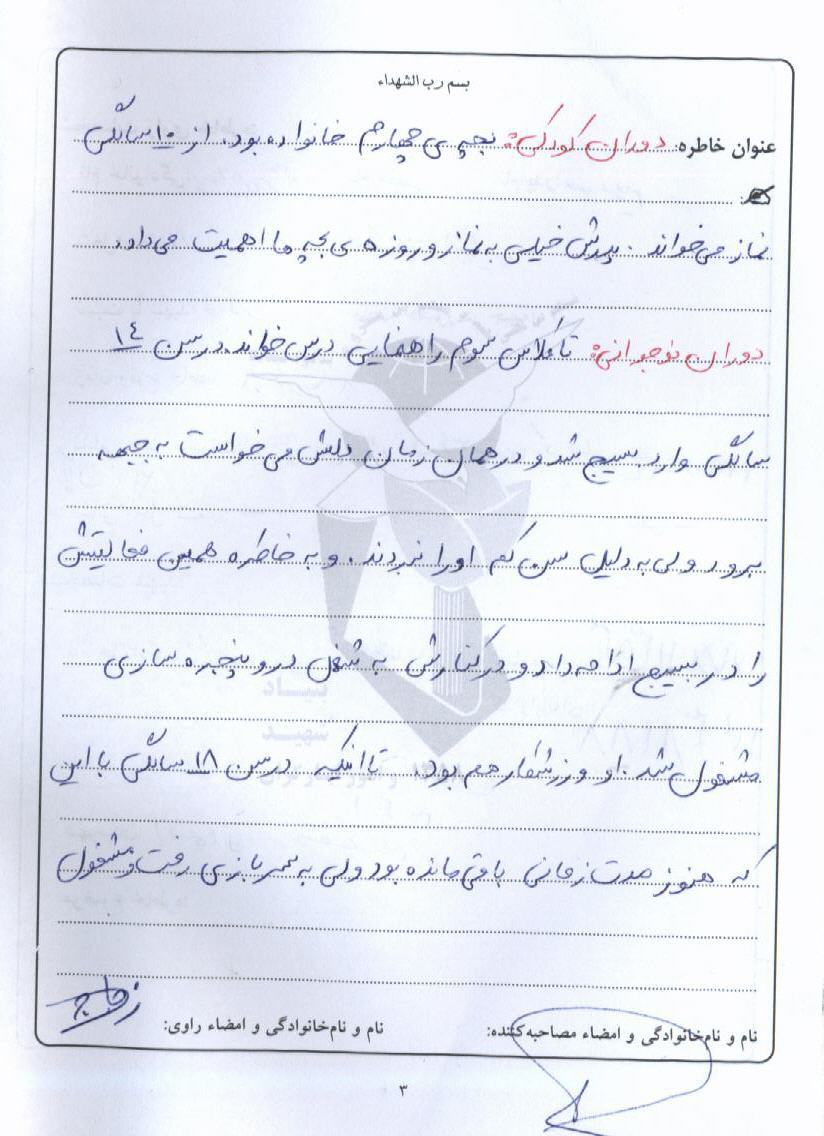 بسم رب الشهداء
عنوان خاطره: دوران کودکی: بچه ی چهارم خانواده بود. از ۱۰ سالگی
نماز می خواند. پدرش خیلی به نماز و روزه ی بچه ها اهمیت می داد.
دوران نوجوانی: تا کلاس سوم راهنمایی درس خواند. در سن ١٤
سالگی وارد بسیج شد و در همان زمان دلش می خواست به جبهه
برود ولی به دلیل سن کم او را نبردند. و به خاطره همین فعالیتش
را در بسیج ادامه داد و در کنارش به شغل در و پنجره سازی
مشغول شد. او ورزشکار هم بود. تا اینکه در سن ۱۸ سالگی با این
که هنوز مدت زمانی باقی مانده بود ولی به سربازی رفت و مشغول
نام و نام‌خانوادگی و امضاء مصاحبه‌کننده:
نام و نام‌خانوادگی و امضاء راوی:
۳